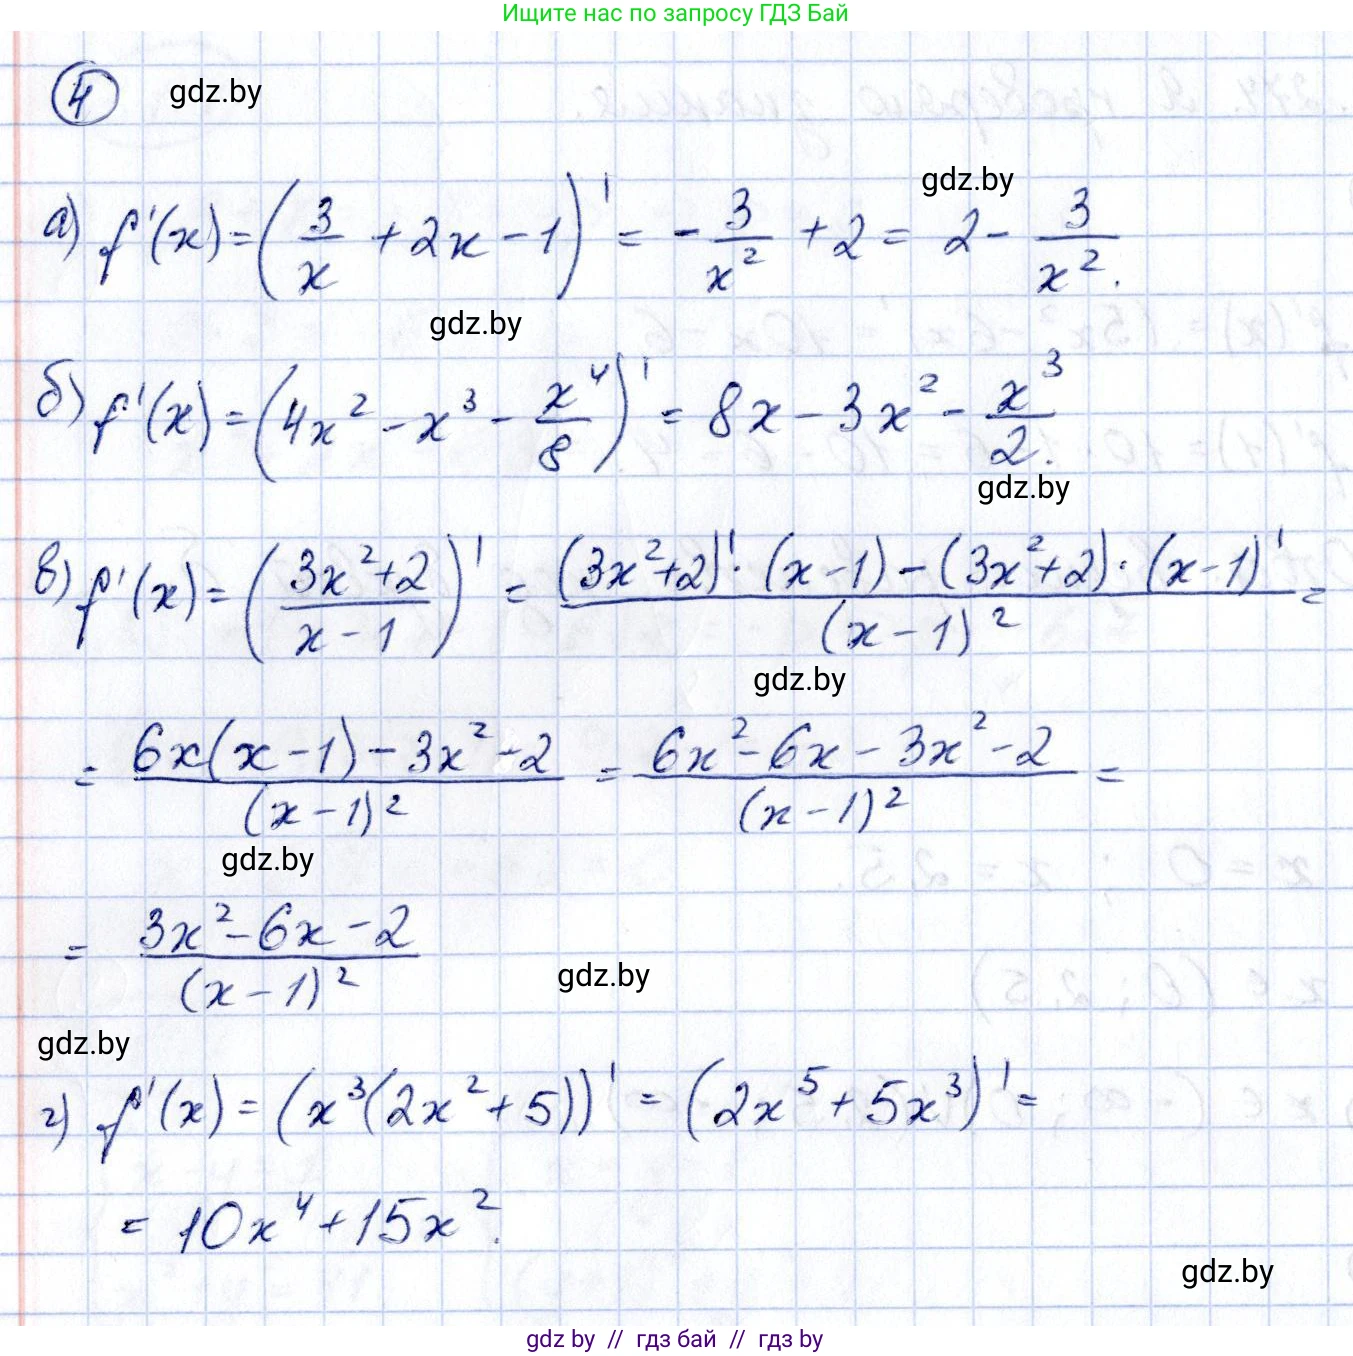 Ищите нас по запросу ГДЗ Бай
4 gdz.by
gdz.by
а) f'(x) = (3/x + 2x - 1)' = - 3/x² + 2 = 2 - 3/x².
gdz.by
б) f'(x) = (4x² - x³ - x⁴/8)' = 8x - 3x² - x³/2.
gdz.by
в) f'(x) = ((3x²+2)/(x-1))' = ((3x²+2)'·(x-1) - (3x²+2)·(x-1)')/(x-1)² =
gdz.by
= (6x(x-1) - 3x² - 2)/(x-1)² = (6x² - 6x - 3x² - 2)/(x-1)² =
gdz.by
= (3x² - 6x - 2)/(x-1)²
gdz.by
gdz.by
г) f'(x) = (x³(2x²+5))' = (2x⁵ + 5x³)' =
= 10x⁴ + 15x².
gdz.by
gdz by // гдз бай // гдз by